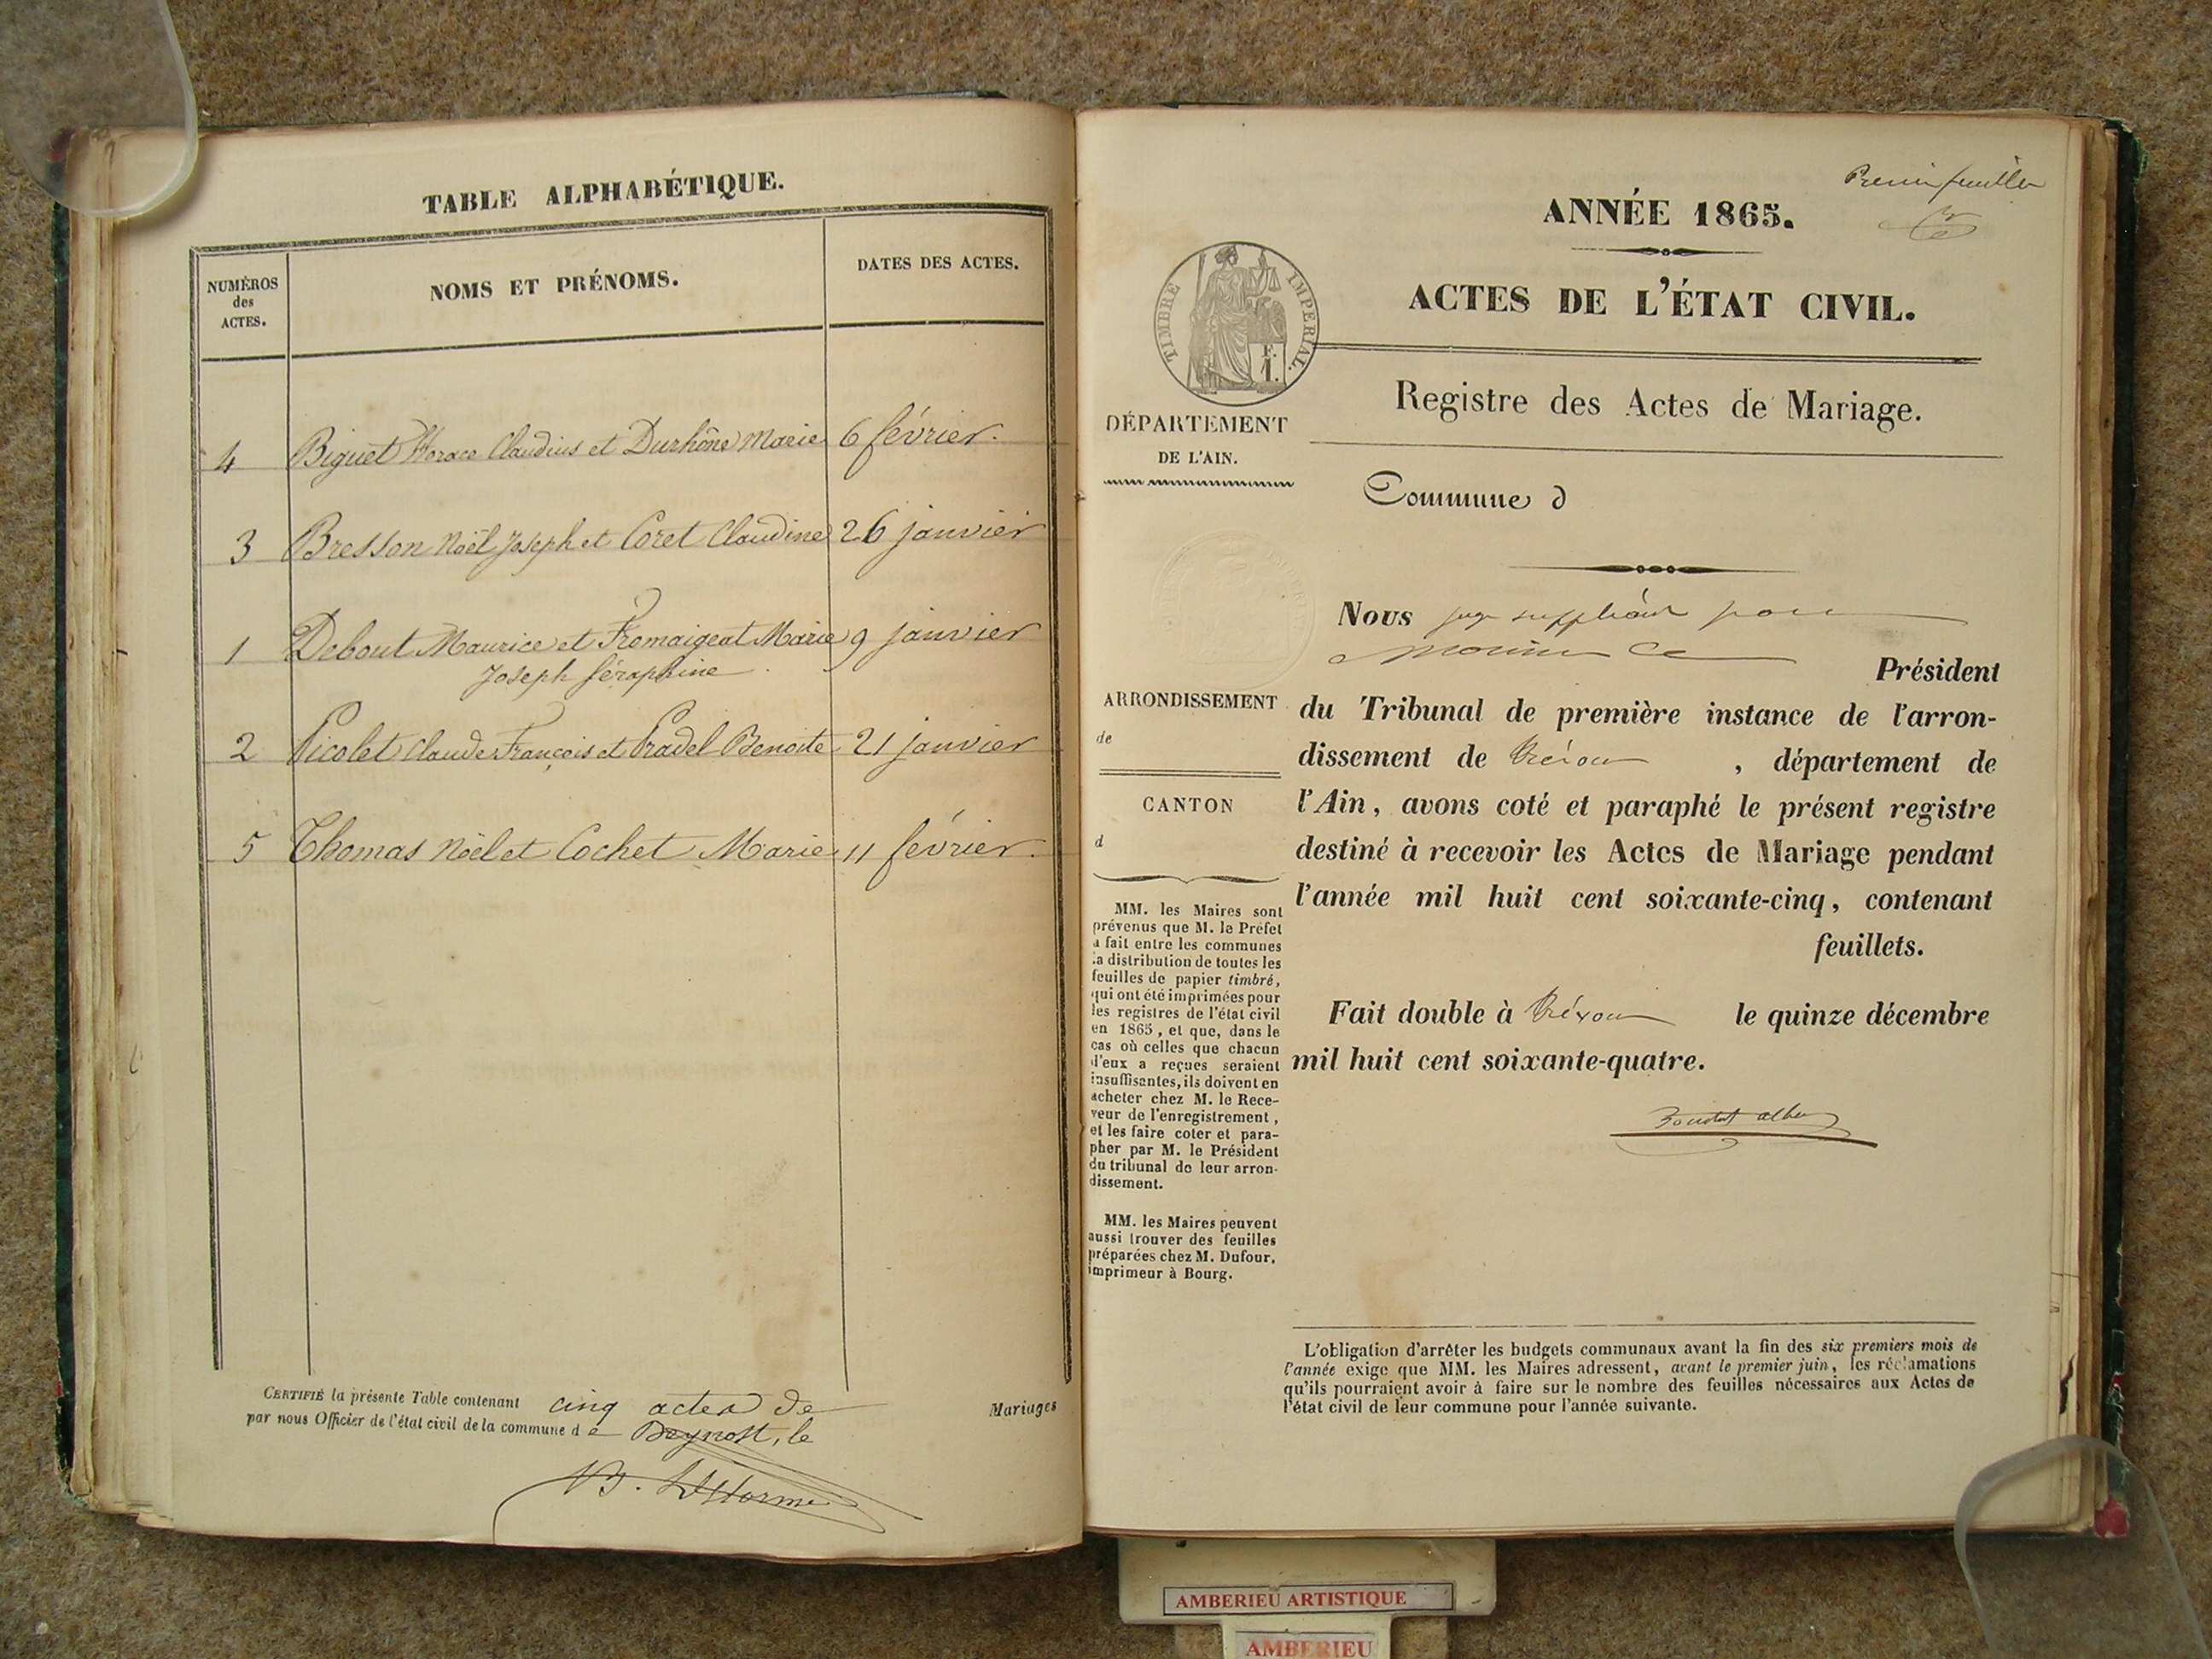 TABLE ALPHABÉTIQUE.
NUMÉROS
des
ACTES.
NOMS ET PRÉNOMS.
DATES DES ACTES.
4 Biguet Horace Claudius et Durhône Marie 6 février.
3 Bresson Noël Joseph et Coret Claudine 26 janvier
1 Debout Maurice et Fromaigeat Marie 9 janvier
Joseph Séraphine
2 Picolet Claude François et Pradel Benoite 21 janvier
5 Thomas Noël et Cochet Marie 11 février.
CERTIFIÉ la présente Table contenant cinq actes de Mariages
par nous Officier de l'état civil de la commune de Beynost, le
Premier feuillet
ANNÉE 1865.
ACTES DE L'ÉTAT CIVIL.
TIMBRE IMPÉRIAL.
1 F.
Registre des Actes de Mariage.
DÉPARTEMENT
DE L'AIN.
Commune d
ARRONDISSEMENT
de
CANTON
d
MM. les Maires sont
prévenus que M. le Préfet
a fait entre les communes
la distribution de toutes les
feuilles de papier timbré,
qui ont été imprimées pour
les registres de l'état civil
en 1865, et que, dans le
cas où celles que chacun
d'eux a reçues seraient
insuffisantes, ils doivent en
acheter chez M. le Rece-
veur de l'enregistrement,
et les faire coter et para-
pher par M. le Président
du tribunal de leur arron-
dissement.
MM. les Maires peuvent
aussi trouver des feuilles
préparées chez M. Dufour,
imprimeur à Bourg.
Nous juge suppléant pour
Président
du Tribunal de première instance de l'arron-
dissement de Trévoux, département de
l'Ain, avons coté et paraphé le présent registre
destiné à recevoir les Actes de Mariage pendant
l'année mil huit cent soixante-cinq, contenant
feuillets.
Fait double à Trévoux le quinze décembre
mil huit cent soixante-quatre.
L'obligation d'arrêter les budgets communaux avant la fin des six premiers mois de
l'année exige que MM. les Maires adressent, avant le premier juin, les réclamations
qu'ils pourraient avoir à faire sur le nombre des feuilles nécessaires aux Actes de
l'état civil de leur commune pour l'année suivante.
AMBERIEU ARTISTIQUE
AMBERIEU